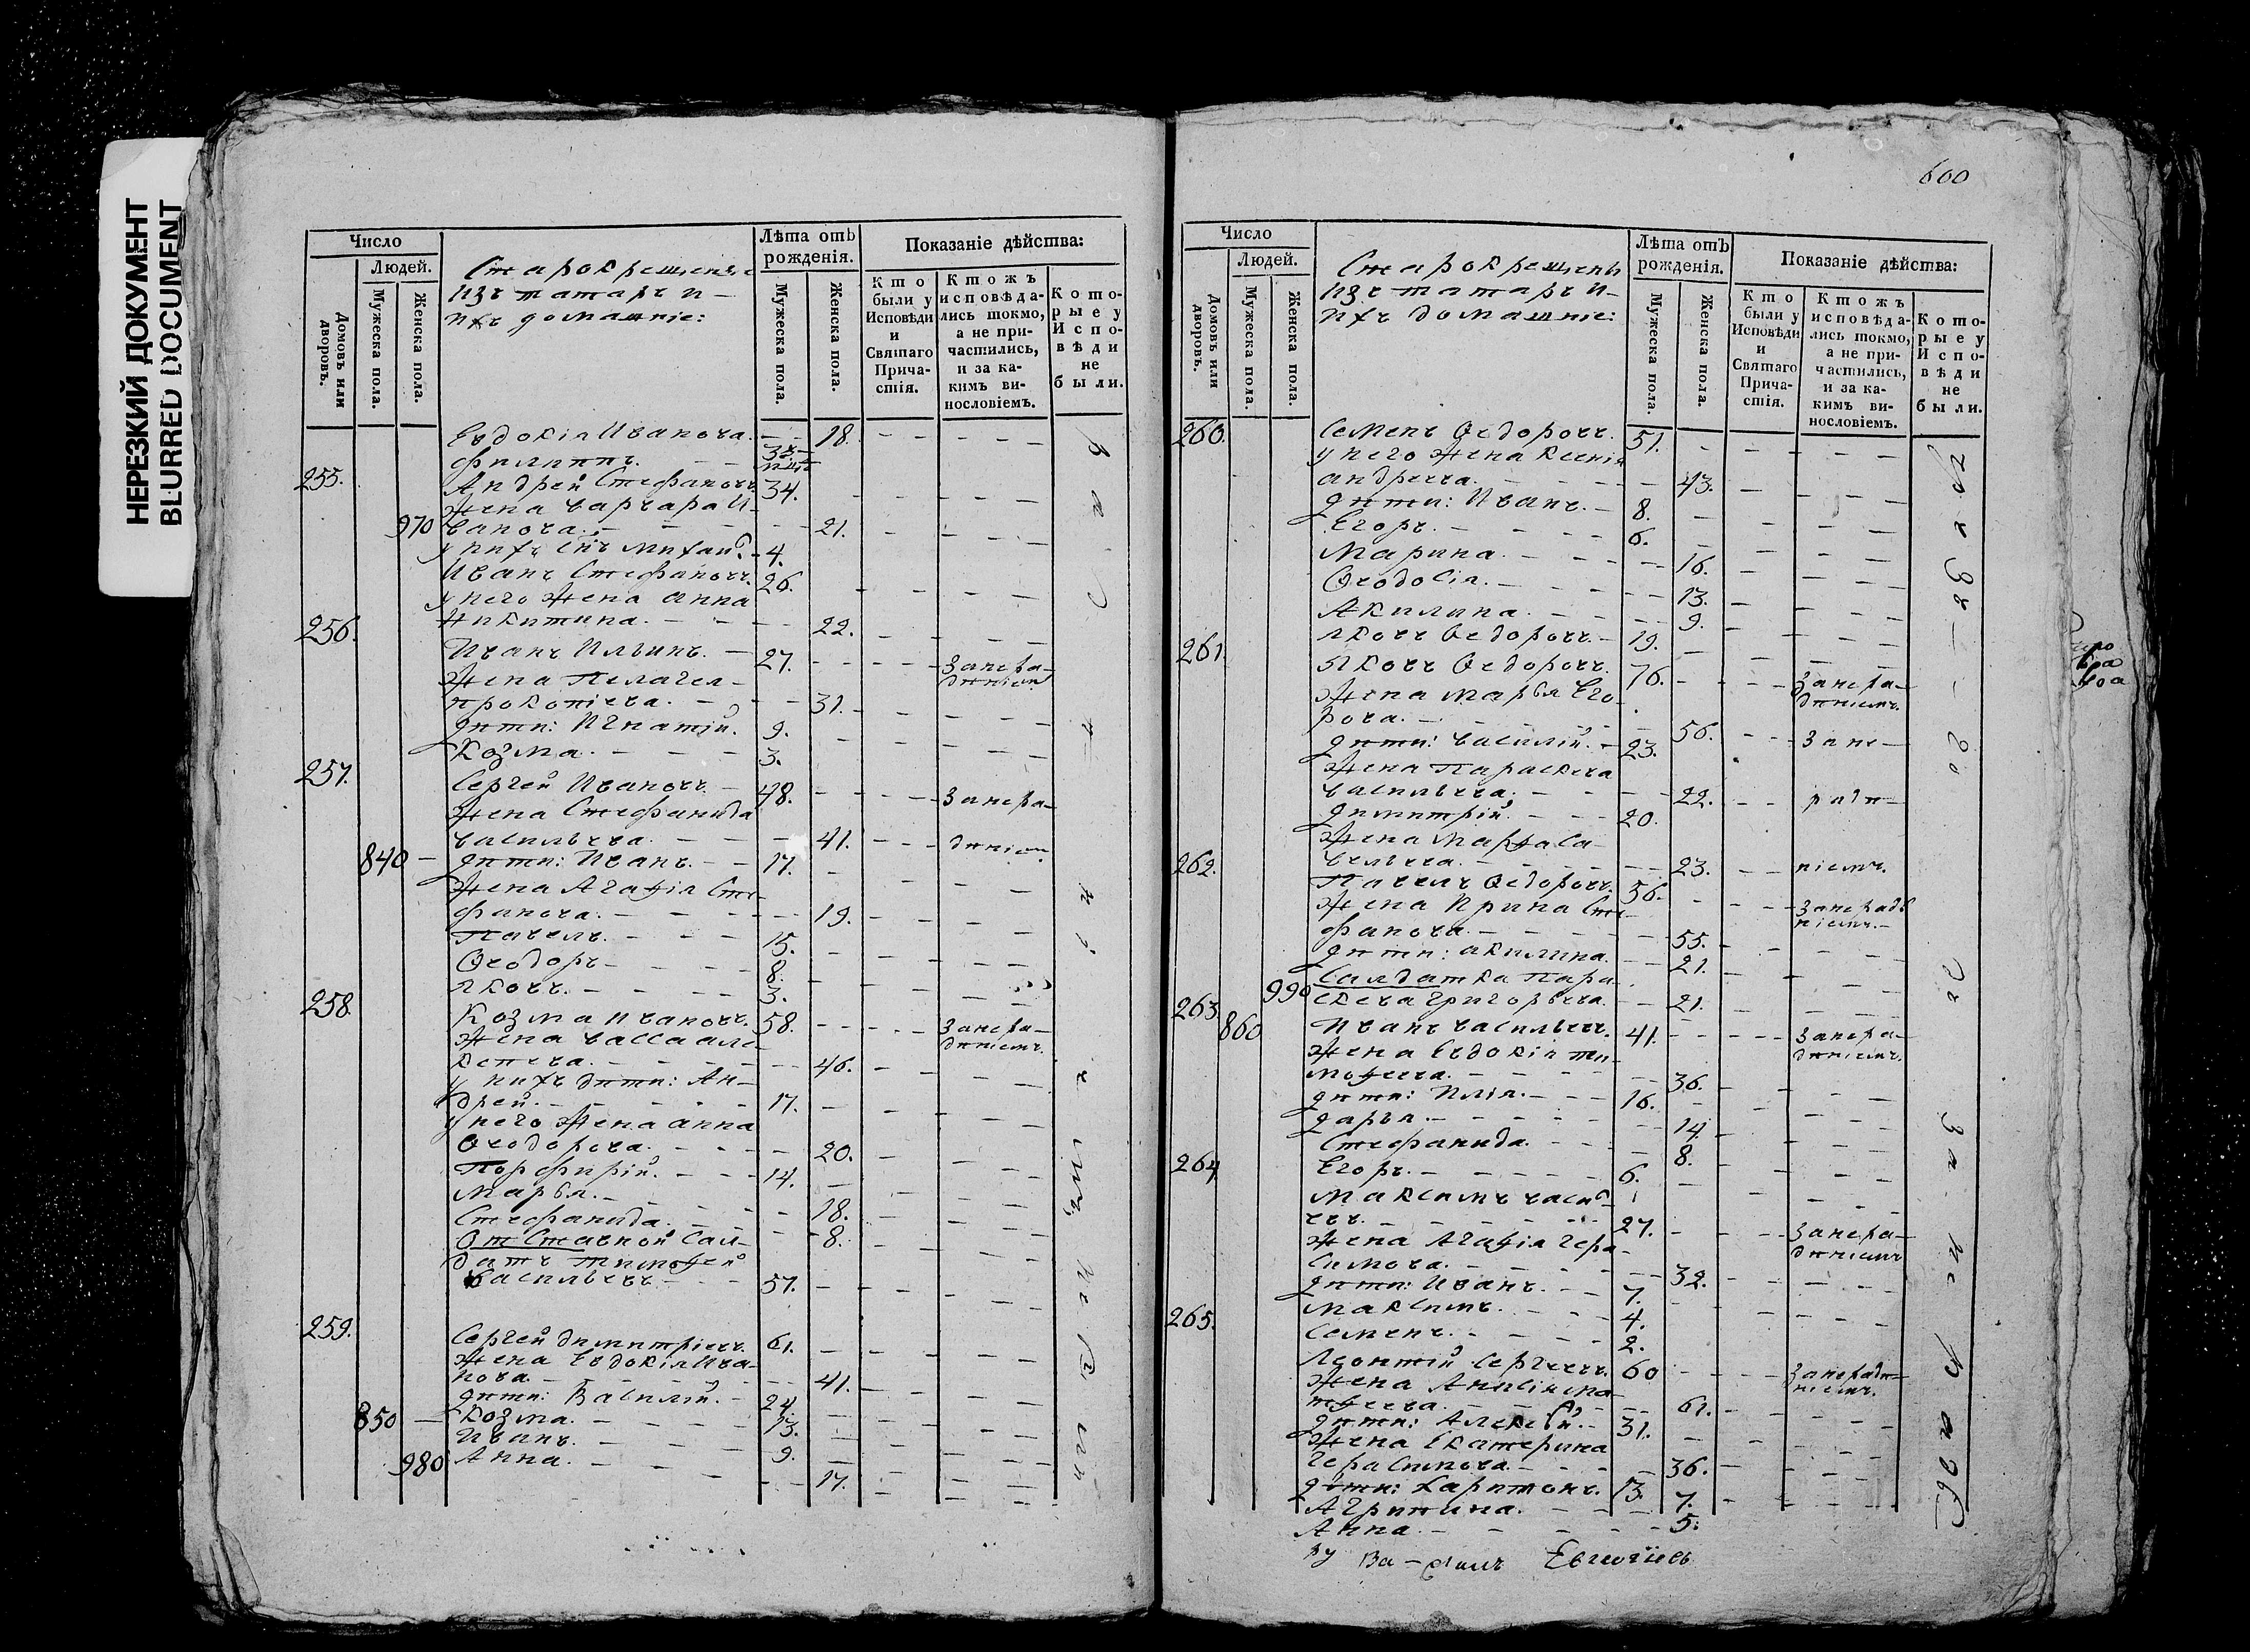 НЕРЕЗКИЙ ДОКУМЕНТ
BLURRED DOCUMENT
Число
Людей.
Домовъ или дворовъ.
Мужеска пола.
Женска пола.
Старокрещеные
изъ татаръ и
ихъ домашніе:
Лѣта отъ рожденія.
Мужеска пола.
Женска пола.
Показаніе дѣйства:
Кто были у Исповѣди и Святаго Причастія.
Ктожъ исповѣдались токмо, а не причастились, и за какимъ винословіемъ.
Которые у Исповѣди не были.
Евдокія Иванова. 18.
Филиппъ.
255. Андрей Стефановъ. 34.
Жена Варвара И-
970 ванова. 21.
у нихъ снъ Михаил. 4.
Иванъ Стефановъ. 26.
у него жена Анна
Никитина. 22.
256. Иванъ Ильинъ. 27. Занера-
Жена Пелагея дѣніем
Прокопіева. 31.
Дѣти: Игнатій. 9.
Козма. 3.
257. Сергей Ивановъ. 48. Занера-
Жена Стефанида
Васильева. 41. дѣніем.
840 Дѣти: Иванъ. 17.
Жена Агафія Сте-
фанова. 19.
Павелъ. 15.
Ѳеодоръ 8.
Яковъ. 3.
258. Козма Ивановъ. 58. Занера-
Жена Васса Але- дѣніемъ.
ксеева. 46.
у нихъ дѣти: Ан-
дрей. 17.
у него жена Анна
Ѳеодорова. 20.
Порфирій. 14.
Марья. 18.
Стефанида. 8.
Отставной Сал-
датъ Тимофей
Васильевъ. 57.
259. Сергей Димитріевъ. 61.
Жена Евдокія Ива-
нова. 41.
Дѣти: Василій. 24.
850 Козма. 13.
Иванъ. 9.
980 Анна. 17.
600
Число
Людей.
Домовъ или дворовъ.
Мужеска пола.
Женска пола.
Старокрещены
изъ татаръ и
ихъ домашніе:
Лѣта отъ рожденія.
Мужеска пола.
Женска пола.
Показаніе дѣйства:
Кто были у Исповѣди и Святаго Причастія.
Ктожъ исповѣдались токмо, а не причастились, и за какимъ винословіемъ.
Которые у Исповѣди не были.
260. Семенъ Ѳедоровъ. 51.
у него жена Ксенія
Андреева. 43.
Дѣти: Иванъ. 8.
Егоръ. 6.
Марина. 16.
Ѳеодосія. 13.
Акилина. 9.
Яковъ Ѳедоровъ. 19.
261. Яковъ Ѳедоровъ. 76. Занера-
Жена Марья Его- дѣніемъ.
рова. 56. Зане-
Дѣти: Василій. 23.
Жена Параскева
Васильева. 22. радѣ-
Димитрій. 20.
Жена Марфа Са-
вельева. 23. ніемъ.
262. Павелъ Ѳедоровъ. 56. Занерадѣ
Жена Ирина Сте- ніемъ.
фанова. 55.
Дѣти: Акилина. 21.
Салдатка Пара-
990 скева Григорьева. 21.
263. 860 Иванъ Васильевъ. 41. Занера-
Жена Евдокія Ти- дѣніемъ.
мофеева. 36.
Дѣти: Илія. 16.
Дарья. 14.
Стефанида. 8.
Егоръ. 6.
264. Максимъ Василь-
евъ. 27. Занера-
Жена Агафія Гера- дѣніемъ
симова. 32.
Дѣти: Иванъ. 7.
Максимъ. 4.
Семенъ. 2.
265. Леонтій Сергеевъ. 60 Занерадѣ-
Жена Анисія Ма- ніемъ.
тфеева. 61.
Дѣти: Алексѣй. 31.
Жена Екатерина
Герасимова. 36.
Дѣти: Харитонъ. 13.
Агрипина. 7.
Анна. 5.